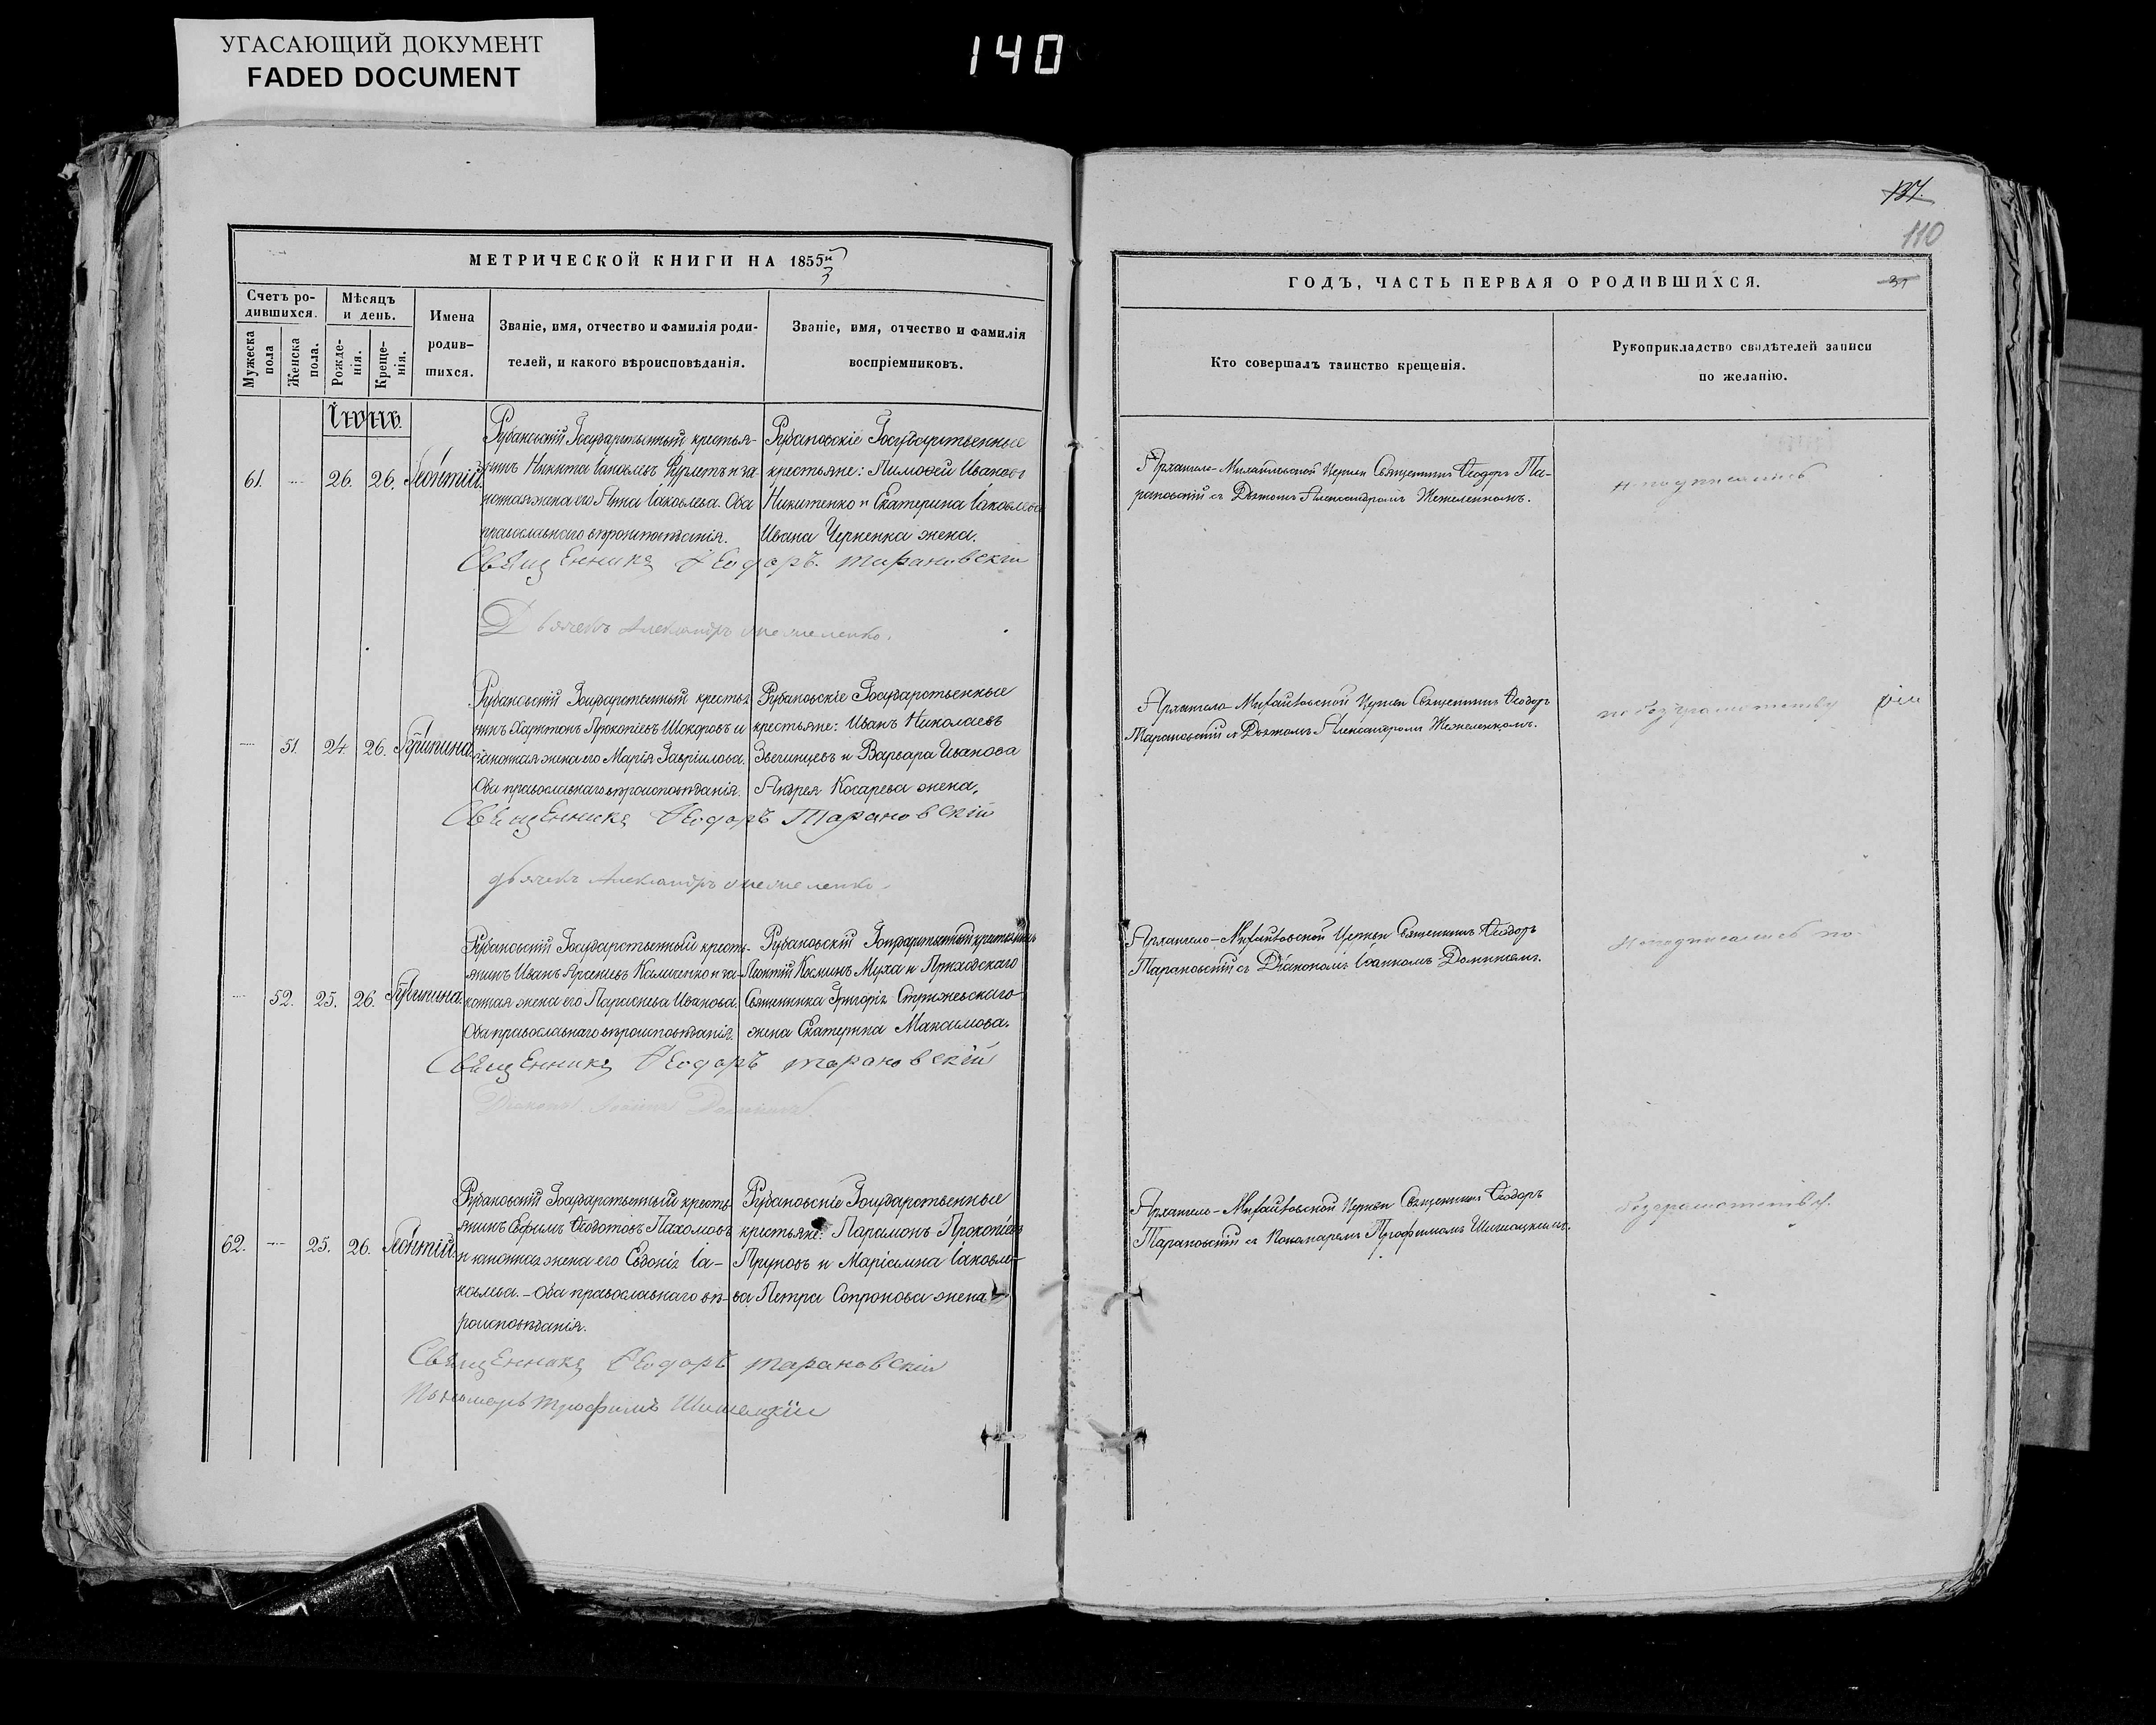 УГАСАЮЩИЙ ДОКУМЕНТ
FADED DOCUMENT
140
МЕТРИЧЕСКОЙ КНИГИ НА 1855й
3
Счетъ ро-
дившихся.
Мужеска
пола
Женска
пола.
Мѣсяцъ
и день.
Рожде-
нія.
Креще-
нія.
Имена
родив-
шихся.
Званіе, имя, отчество и фамилія роди-
телей, и какого вѣроисповѣданія.
Званіе, имя, отчество и фамилія
воспріемниковъ.
Іюнь.
61.
26.
26.
Леонтій
Рубановскій Государственный крестья-
нинъ Никита Іаковлевъ и за-
конная жена его Анна Іаковлева. Оба
православнаго вѣроисповѣданія.
Рубановскіе Государственные
крестьяне: Тимоѳей Ивановъ
Никитенко и Екатерина Іаковлева
Ивана Черненка жена.
Священникъ Ѳеодоръ Тарановскій
Дьячекъ Александръ Жежеленко.
51.
24.
26.
Агрипина
Рубановскій Государственный крестья-
нинъ Харитонъ Прокопіевъ Шокоровъ и
законная жена его Марія Гавріилова.
Оба православнаго вѣроисповѣданія.
Рубановскіе Государственные
крестьяне: Иванъ Николаевъ
Звегинцевъ и Варвара Иванова
Андрея Косарева жена.
Священникъ Ѳеодоръ Тарановскій
дьячекъ Александръ Жежеленко.
52.
25.
26.
Агрипина.
Рубановскій Государственный кресть-
янинъ Иванъ Арсеніевъ Каличенко и за-
конная жена его Параскева Иванова.
Оба православнаго вѣроисповѣданія.
Рубановскій Государственный крестьянинъ
Леонтій Косминъ Муха и Приходскаго
Священника Григорія Стрижевскаго
жена Екатерина Максимова.
Священникъ Ѳеодоръ Тарановскій
Діаконъ Іоаннъ
62.
25.
26.
Леонтій
Рубановскій Государственный кресть-
янинъ Ефимъ Ѳедотовъ Пахомовъ
и законная жена его Евдокія Іа-
ковлева. - Оба православнаго вѣ-
роисповѣданія.
Рубановскіе Государственные
крестьяне: Парамонъ Прокопіевъ
Пруновъ и Маріамна Іаковле-
ва Петра Сопронова жена
Священникъ Ѳеодоръ Тарановскій
Пономарь Трофимъ Шишацкій
137.
110
31
ГОДЪ, ЧАСТЬ ПЕРВАЯ О РОДИВШИХСЯ.
Кто совершалъ таинство крещенія.
Рукоприкладство свидѣтелей записи
по желанію.
Архангело-Михайловской Церкви Священникъ Ѳеодоръ Та-
рановскій съ Дьячкомъ Александромъ Жежеленкомъ.
неподписались
Архангело-Михайловской Церкви Священникъ Ѳеодоръ
Тарановскій съ Дьячкомъ Александромъ Жежеленкомъ.
по безграмотству
Архангело-Михайловской Церкви Священникъ Ѳеодоръ
Тарановскій съ Діакономъ Іоанномъ
Неподписались по
Архангело-Михайловской Церкви Священникъ Ѳеодоръ
Тарановскій съ Пономаремъ Трофимомъ Шишацкимъ.
безграмотству.